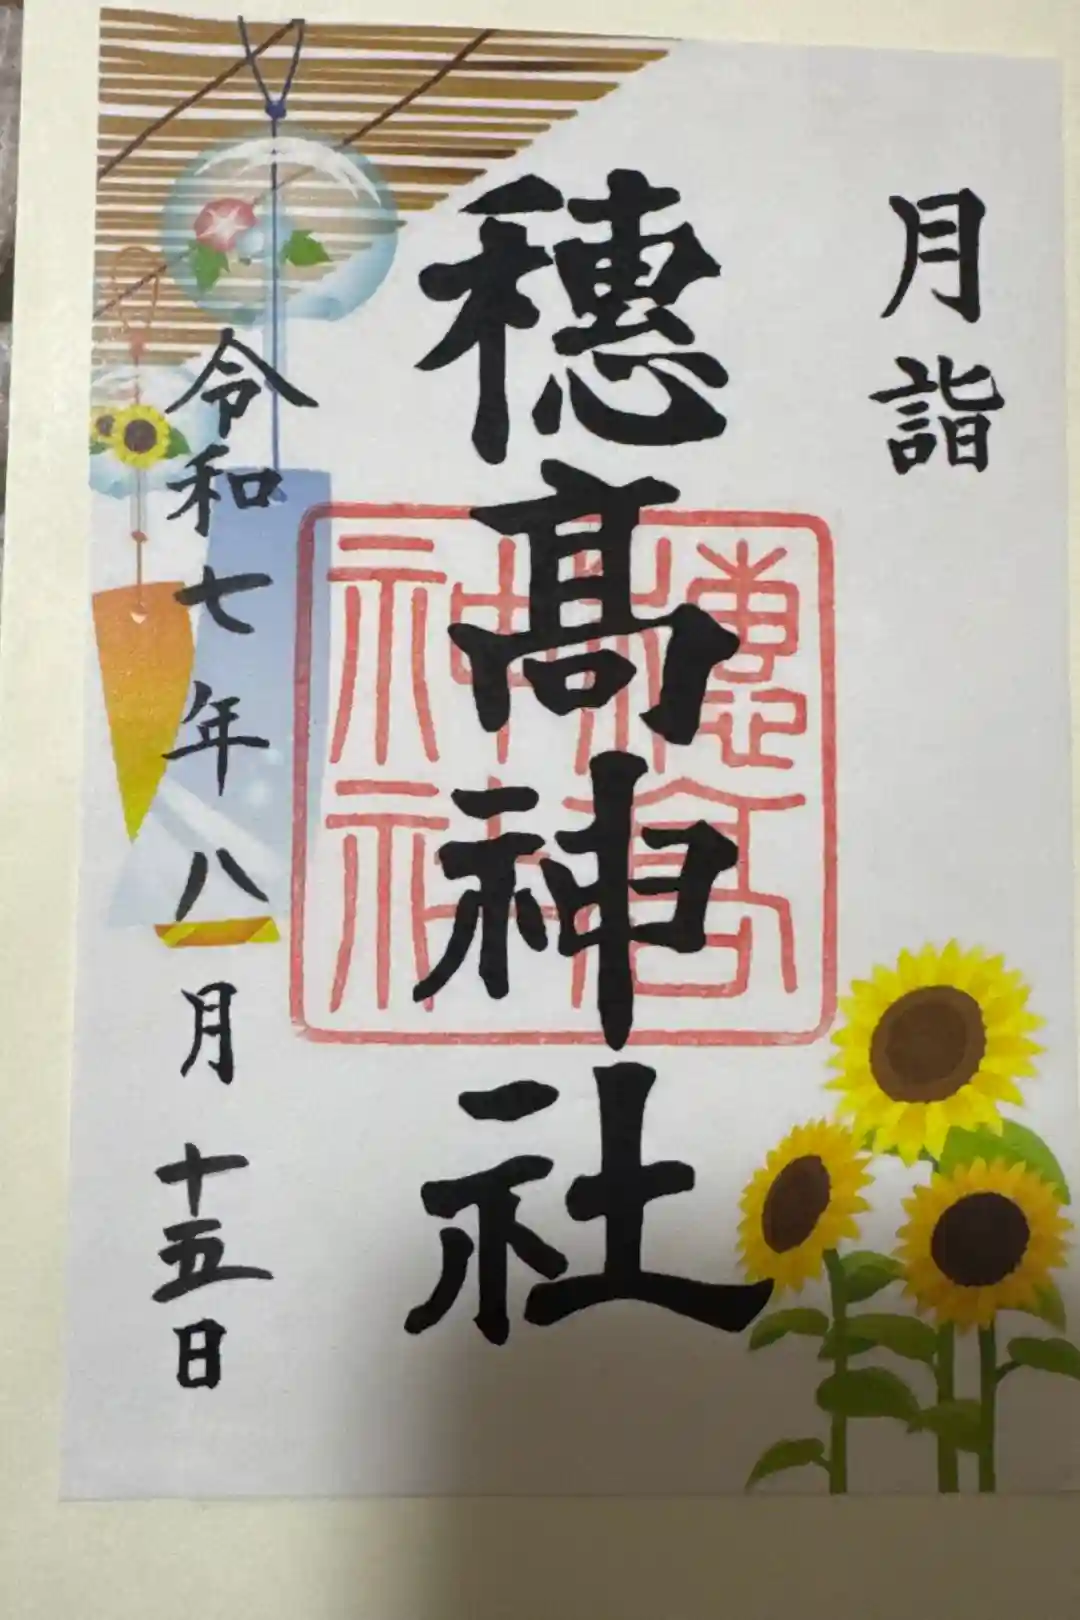 月詣
穂髙神社
穂髙
神社
令和七年八月十五日